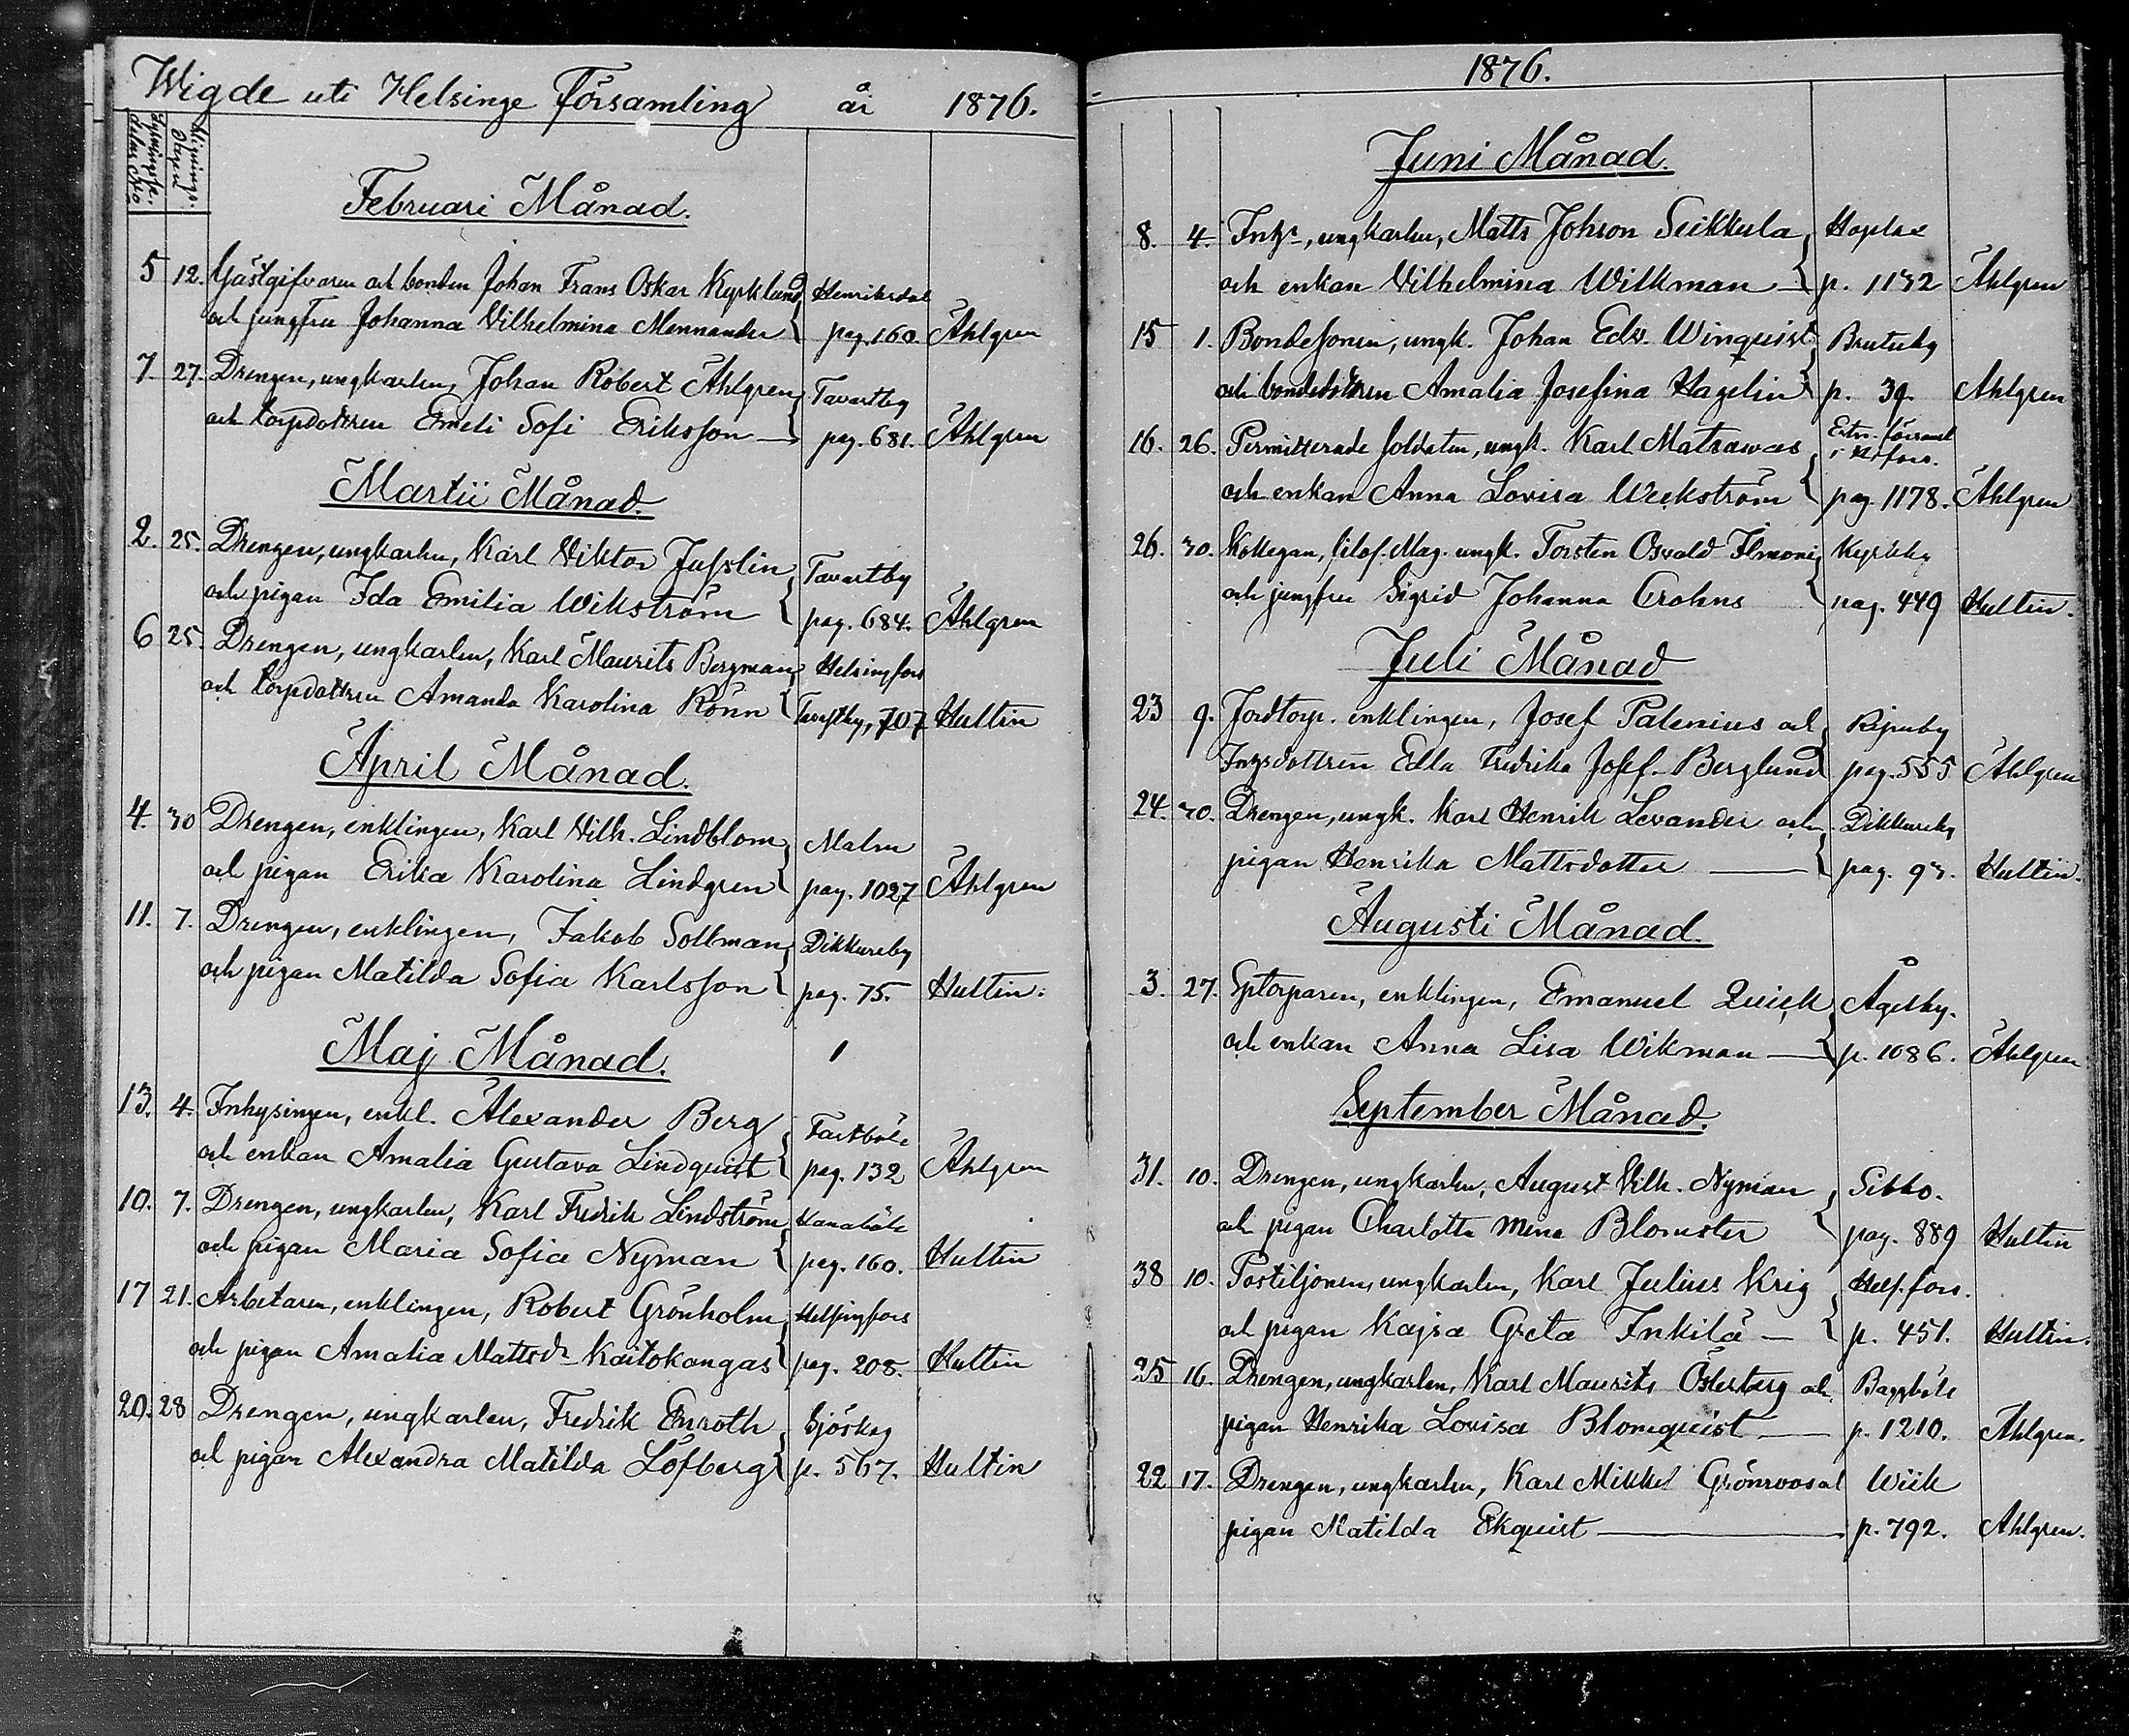 Wigde uti Helsinge Församling år 1876.
Lysningsse- delns No
Vignings- dagen
Februari Månad.
5 12. Gästgifvaren och bonden Johan Frans Oskar Kyrklund Henriksdal
och jungfru Johanna Vilhelmina Mennander pag. 160 Åhlgren
7. 27. Drengen, ungkarlen, Johan Robert Åhlgren Tavastby
och torpdottren Emeli Sofi Eriksson pag. 681. Åhlgren
Martii Månad.
2. 25. Drengen, ungkarlen, Karl Viktor Jusslin Tavastby
och pigan Ida Emilia Wikström pag. 684. Åhlgren
6 25. Drengen, ungkarlen, Karl Maurits Bergman Helsingfors
och torpdottren Amanda Karolina Rönn Tavastby, 707 Hultin
April Månad.
4. 30 Drengen, enklingen, Karl Vilh. Lindblom Malm
och pigan Erika Karolina Lindgren pag. 1027 Åhlgren
11. 7. Drengen, enklingen, Jakob Sollman Dikkursby
och pigan Matilda Sofia Karlsson pag. 75. Hultin.
Maj Månad.
13. 4. Inhysingen, enkl. Alexander Berg Fastböle
och enkan Amalia Gustava Lindquist pag. 132 Åhlgren
10. 7. Drengen, ungkarlen, Karl Fredrik Lindström Hanaböle
och pigan Maria Sofia Nyman pag. 160. Hultin
17 21. Arbetaren, enklingen, Robert Grönholm Helsingfors
och pigan Amalia Mattsdr Kaitokangas pag. 208. Hultin
20. 28 Drengen, ungkarlen, Fredrik Enroth Sjöskog
och pigan Alexandra Matilda Löfberg p. 567. Hultin
1876.
Juni Månad.
8. 4. Inhys, ungkarlen, Matts Johson Seikkula Hoplax
och enkan Vilhelmina Wilkman p. 1132 Åhlgren
15 1. Bondesonen, ungk. Johan Edv. Winquist Brutuby
och bondedottren Amalia Josefina Hagelin p. 39. Ahlgren
16. 26. Permitterade soldaten, ungk. Karl Matsawas
och enkan Anna Lovisa Weckström pag. 1178. Åhlgren
26. 30. Kollegan, filof. Mag. ungk. Torsten Osvald Ilmoni Kyrkby
och jungfru Sigrid Johanna Crohns pag. 449 Hultin.
Juli Månad
23 9. Jordtorp. enklingen, Josef Palenius och Ripuby
Inhysdottren Edla Fredrika Josef. Berglund pag. 555 Åhlgren
24. 30. Drengen, ungk. Karl Henrik Levander och Dikkursby
pigan Henrika Mattsdotter pag. 93. Hultin.
Augusti Månad.
3. 27. Sptorparen, enklingen, Emanuel Quick Ågelby.
och enkan Anna Lisa Wikman p. 1086. Åhlgren
September Månad.
31. 10. Drengen, ungkarlen, August Vilh. Nyman Sibbo.
och pigan Charlotta Mina Blomster pag. 889 Hultin
38 10. Postiljonen, ungkarlen, Karl Julius Krig Helf. fors.
och pigan Kajsa Greta Inkilä p. 451. Hultin.
35 16. Drengen, ungkarlen, Karl Maurits Österberg och Baggböle
pigan Henrika Lovisa Blomquist p. 1210. Ahlgren.
22 17. Drengen, ungkarlen, Karl Mikkel Grönroos och Wiik
pigan Matilda Ekquist p. 792. Ahlgren.